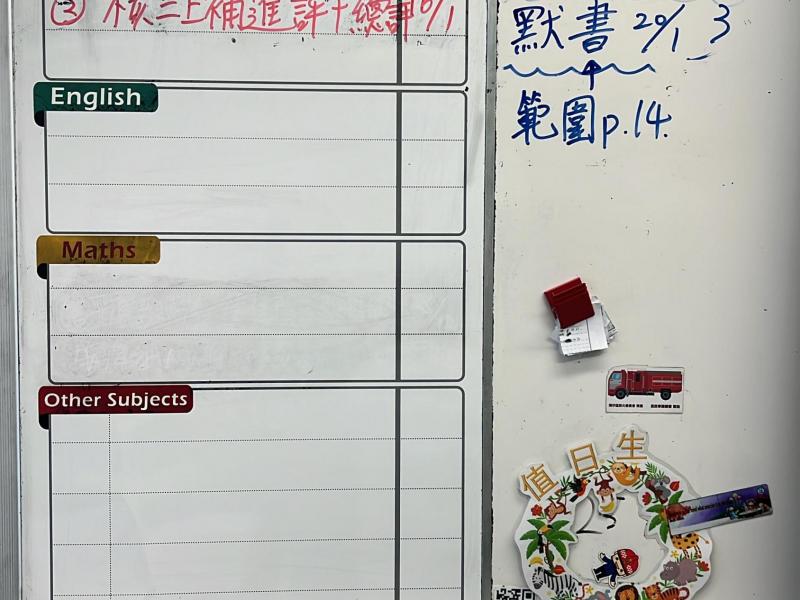 ③ 核三上補進評+總評 6/1
English
Maths
Other Subjects
默書 20/1 3
範圍 p.14.
值日生